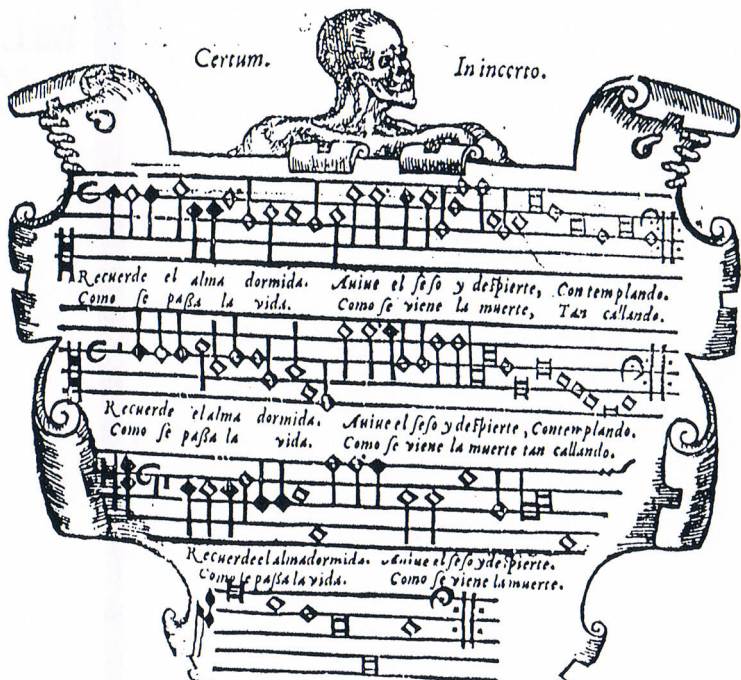 Certum. In incerto.
Recuerde el alma dormida. Auiue el seso y despierte, Contemplando.
Como se paßa la vida. Como se viene la muerte, Tan callando.
Recuerde el alma dormida. Auiue el seso y despierte, Contemplando.
Como se paßa la vida. Como se viene la muerte tan callando.
Recuerde el alma dormida. Auiue el seso y despierte.
Como se paßa la vida. Como se viene la muerte.